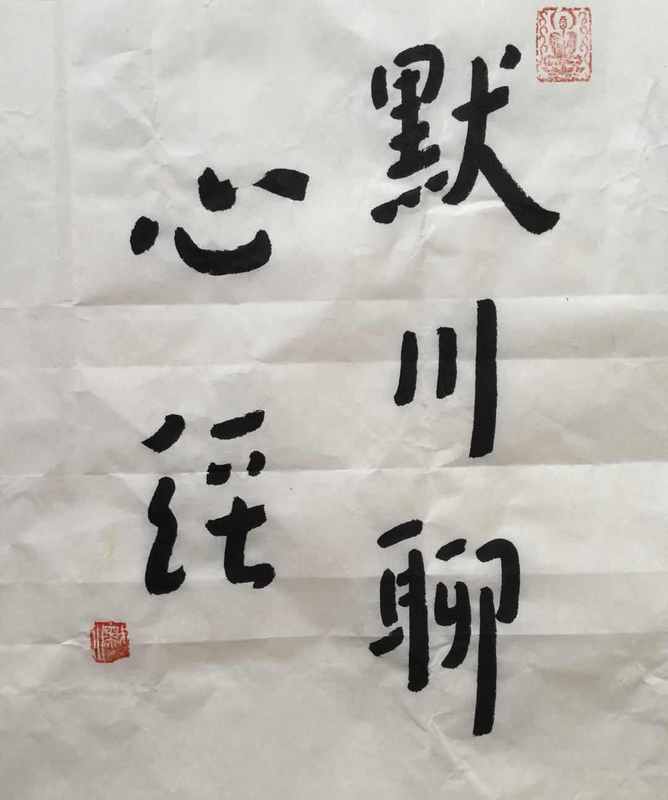 默川聊
心经